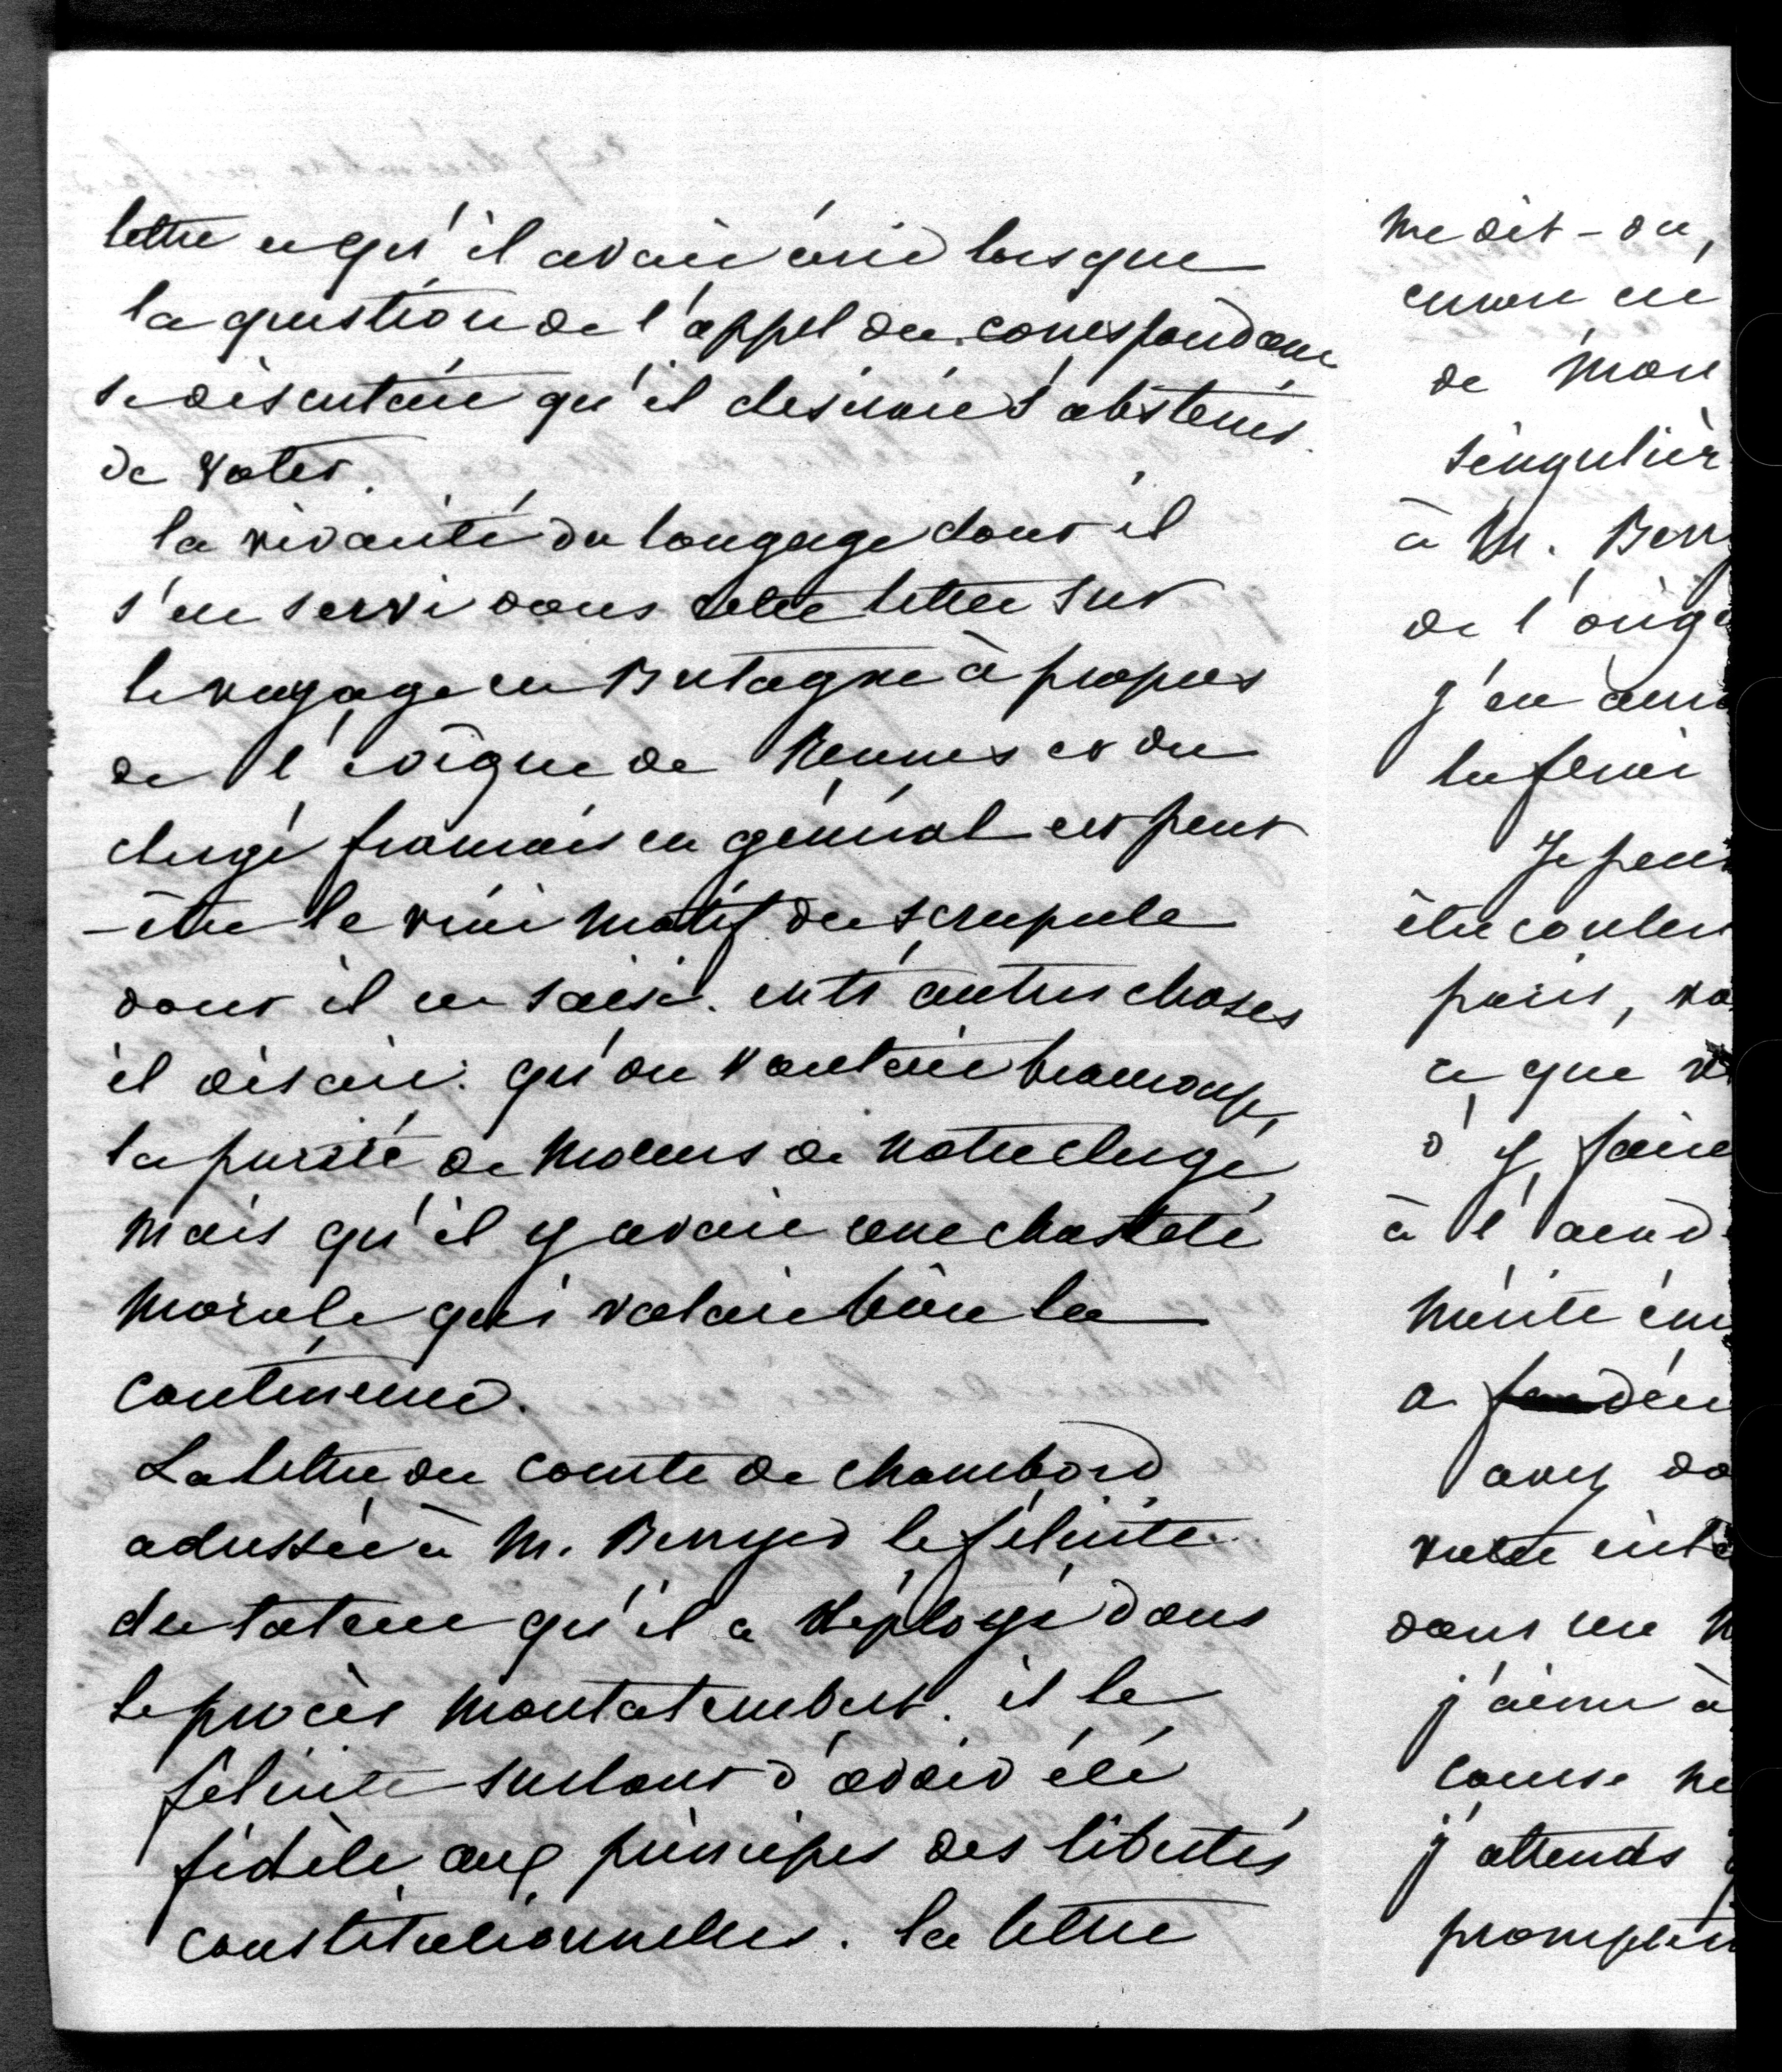 lettre et qu'il avait écrit lorsque
la question de l'appel du correspondant
se discutait qu'il désirait s'abstenir
de voter.
la vivacité du langage dont il
s'est servi dans cette lettre sur
le voyage en Bretagne à propos
de l'évêque de Rennes et du
clergé français en général est peut
-être le vrai motif du scrupule
dont il est saisi. entr'autres choses
il disait: qu'on vantait beaucoup
la pureté de moeurs de notre clergé
mais qu'il y avait une chasteté
morale qui valait bien la
continence.
La lettre du comte de Chambord
adressée à M. Berryer le félicite
du talent qu'il a déployé dans
le procès Montalembert. il le
félicite surtout d'avoir été
fidèle aux principes des libertés
constitutionnelles. la lettre
me dit-on,
encore
de mon
singulier
à M. Berry
de l'orig
j'en aur
Je peu
être
puis, vo
ce que
d'y faire
à l'
mérite
a
avez do
votre inté
dans un
j'aime à
cause ne
j'attends
promptem